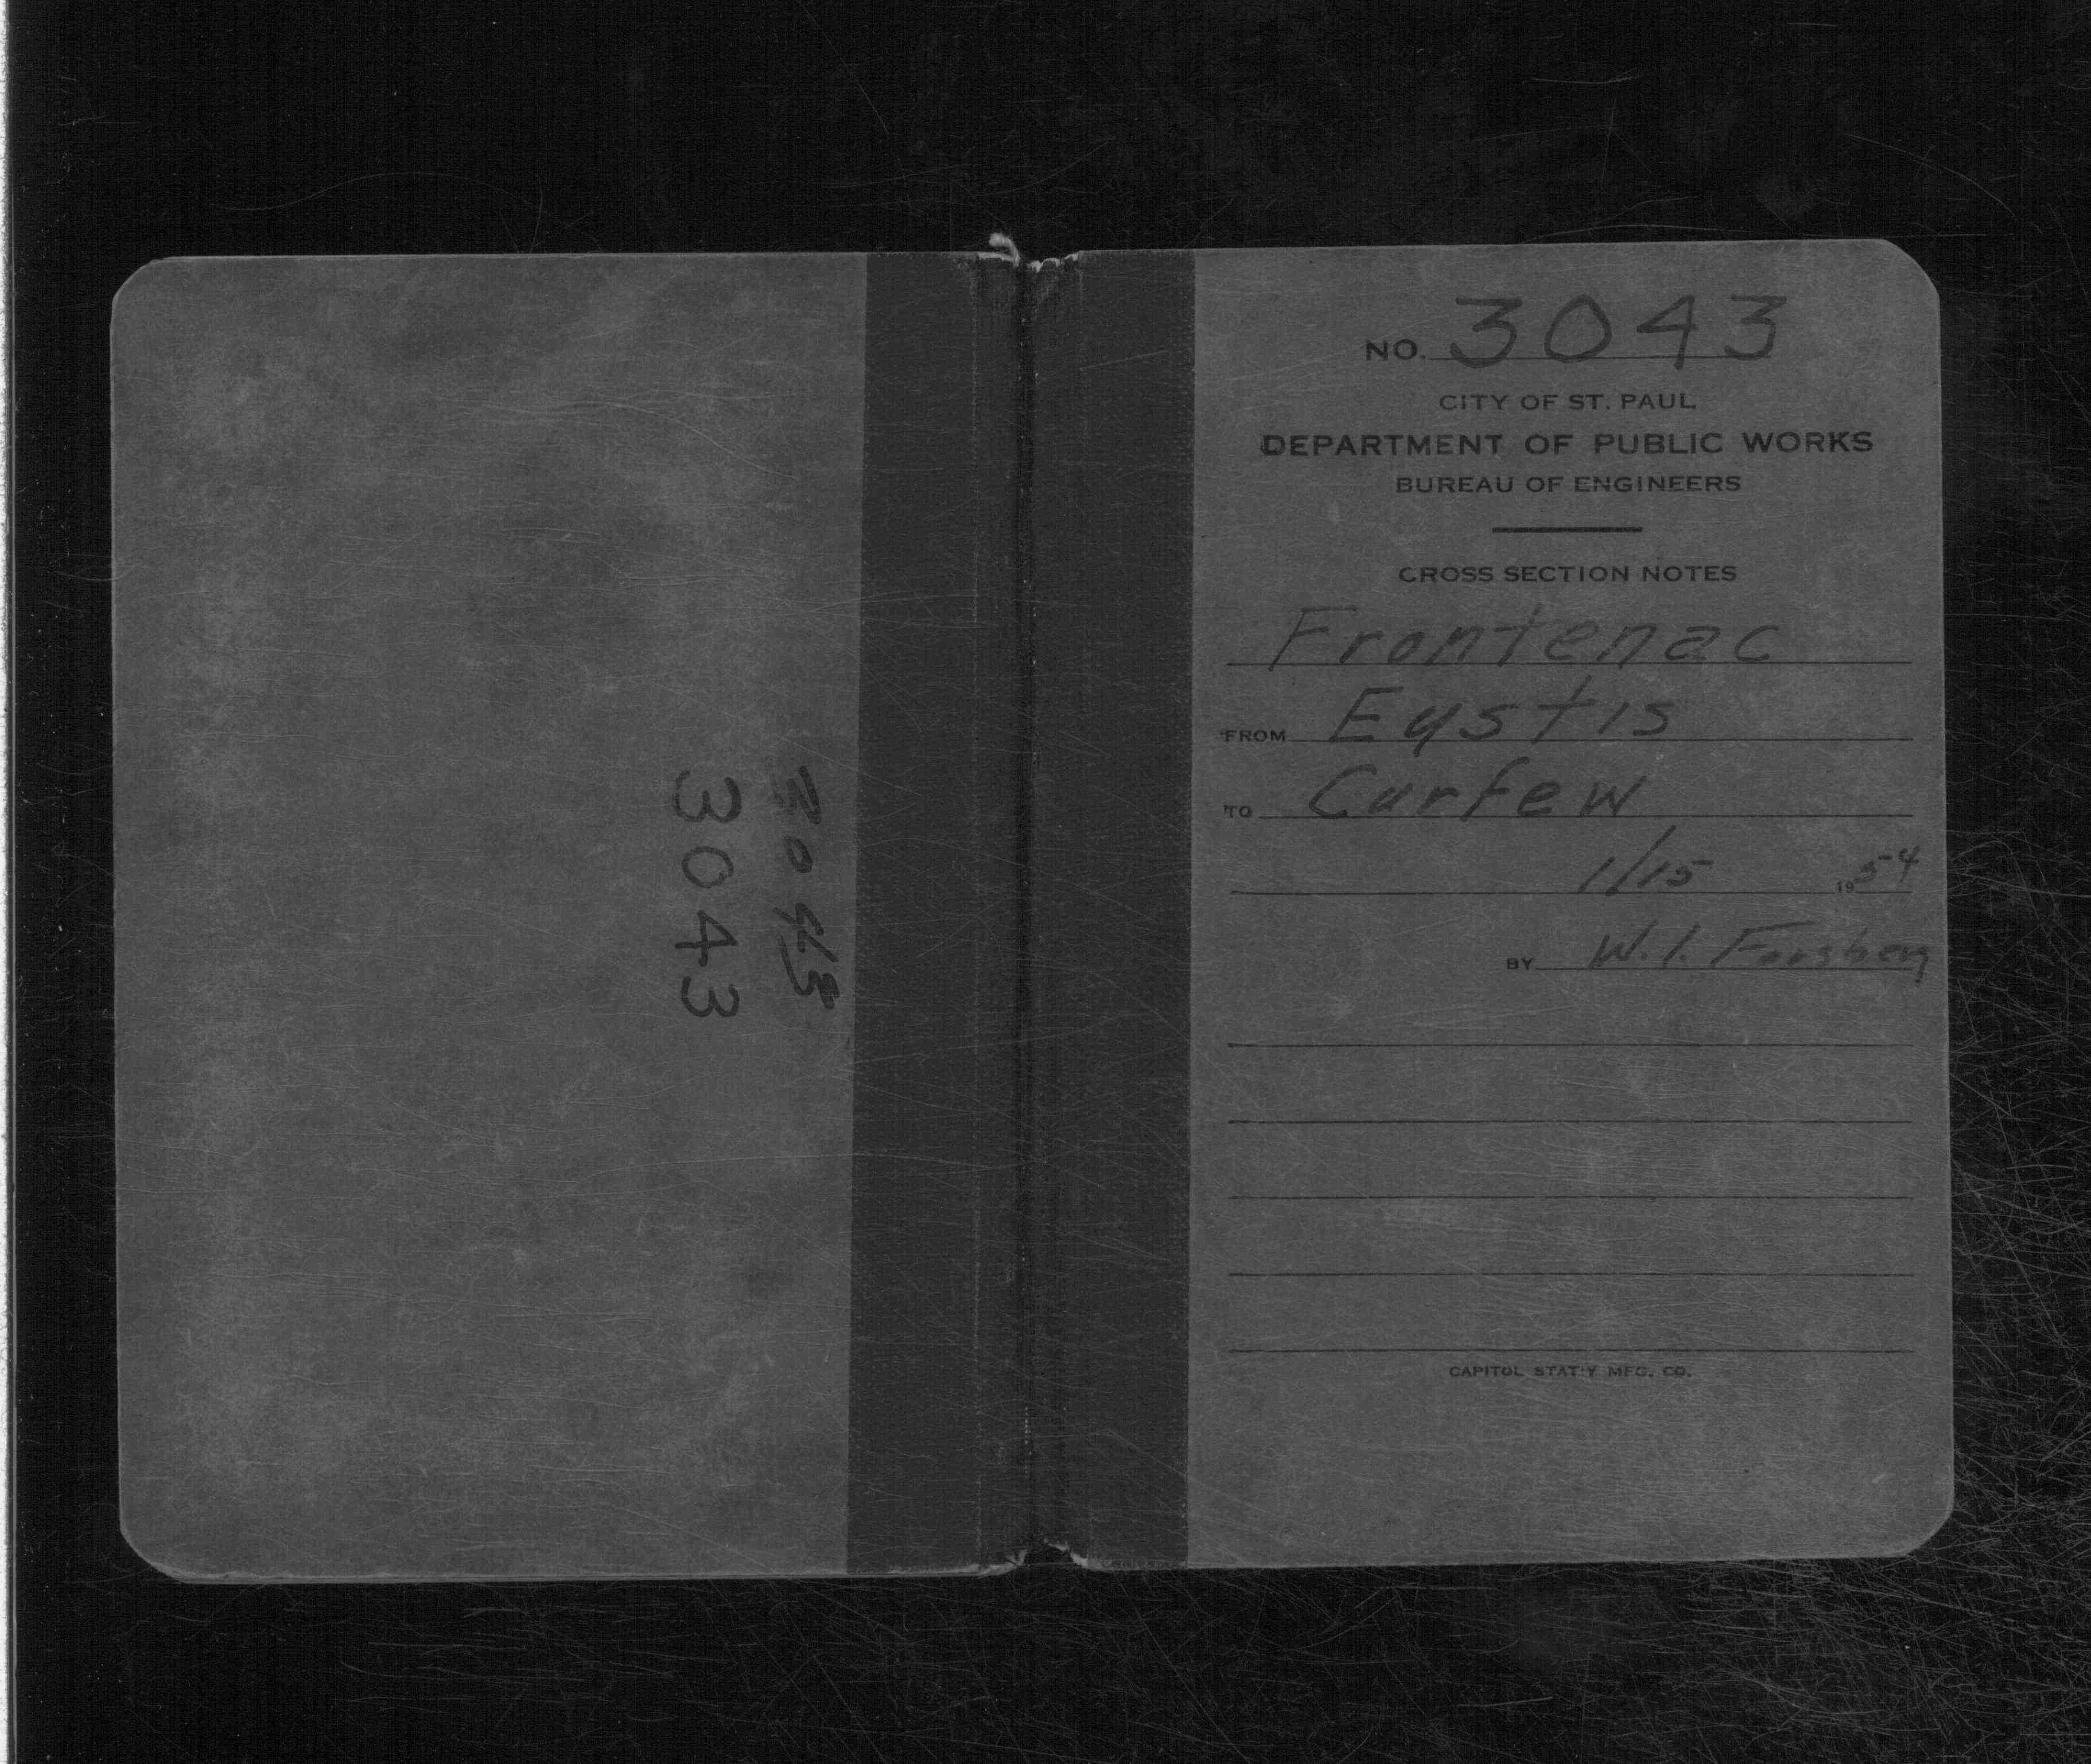 3043
3043
NO. 3043
CITY OF ST. PAUL
DEPARTMENT OF PUBLIC WORKS
BUREAU OF ENGINEERS
CROSS SECTION NOTES
Frontenac
FROM Eustis
TO Curfew
1/15 1954
BY W. I. Forsberg
CAPITOL STAT'Y MFG. CO.